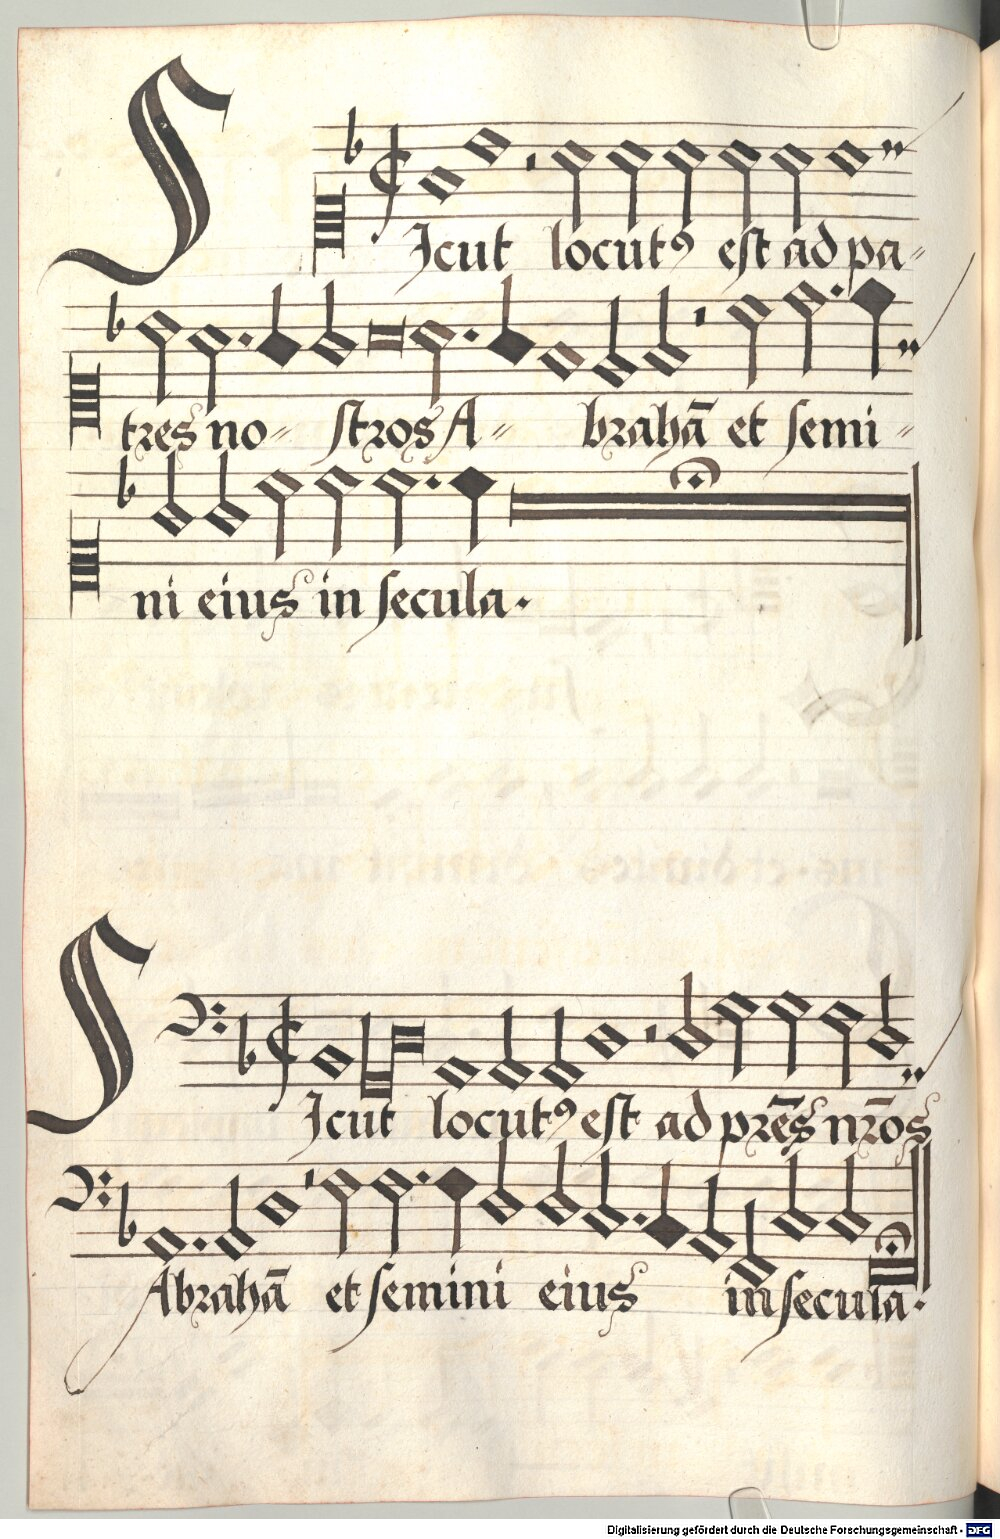 SIcut locutꝰ est ad pa-
tres no- stros A- brahā et semi-
ni eius in secula.
SIcut locutꝰ est ad pr̄es nr̄os
Abrahā et semini eius in secula.
Digitalisierung gefördert durch die Deutsche Forschungsgemeinschaft - DFG